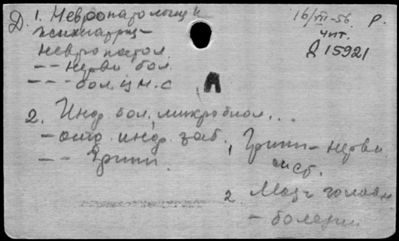 Д. 1. Невропатология и
психиатрия -
Невропатол
-- нерви бол
--- бол. ц.н.с
16/VII-56 Р.
чит.
Д 15921
А
2. Инф. бол., микробиол...
- отд. инф. заб.
-- Грипп.
1 Грипп - нерви
сист.
2 Мозг головн
- болезни